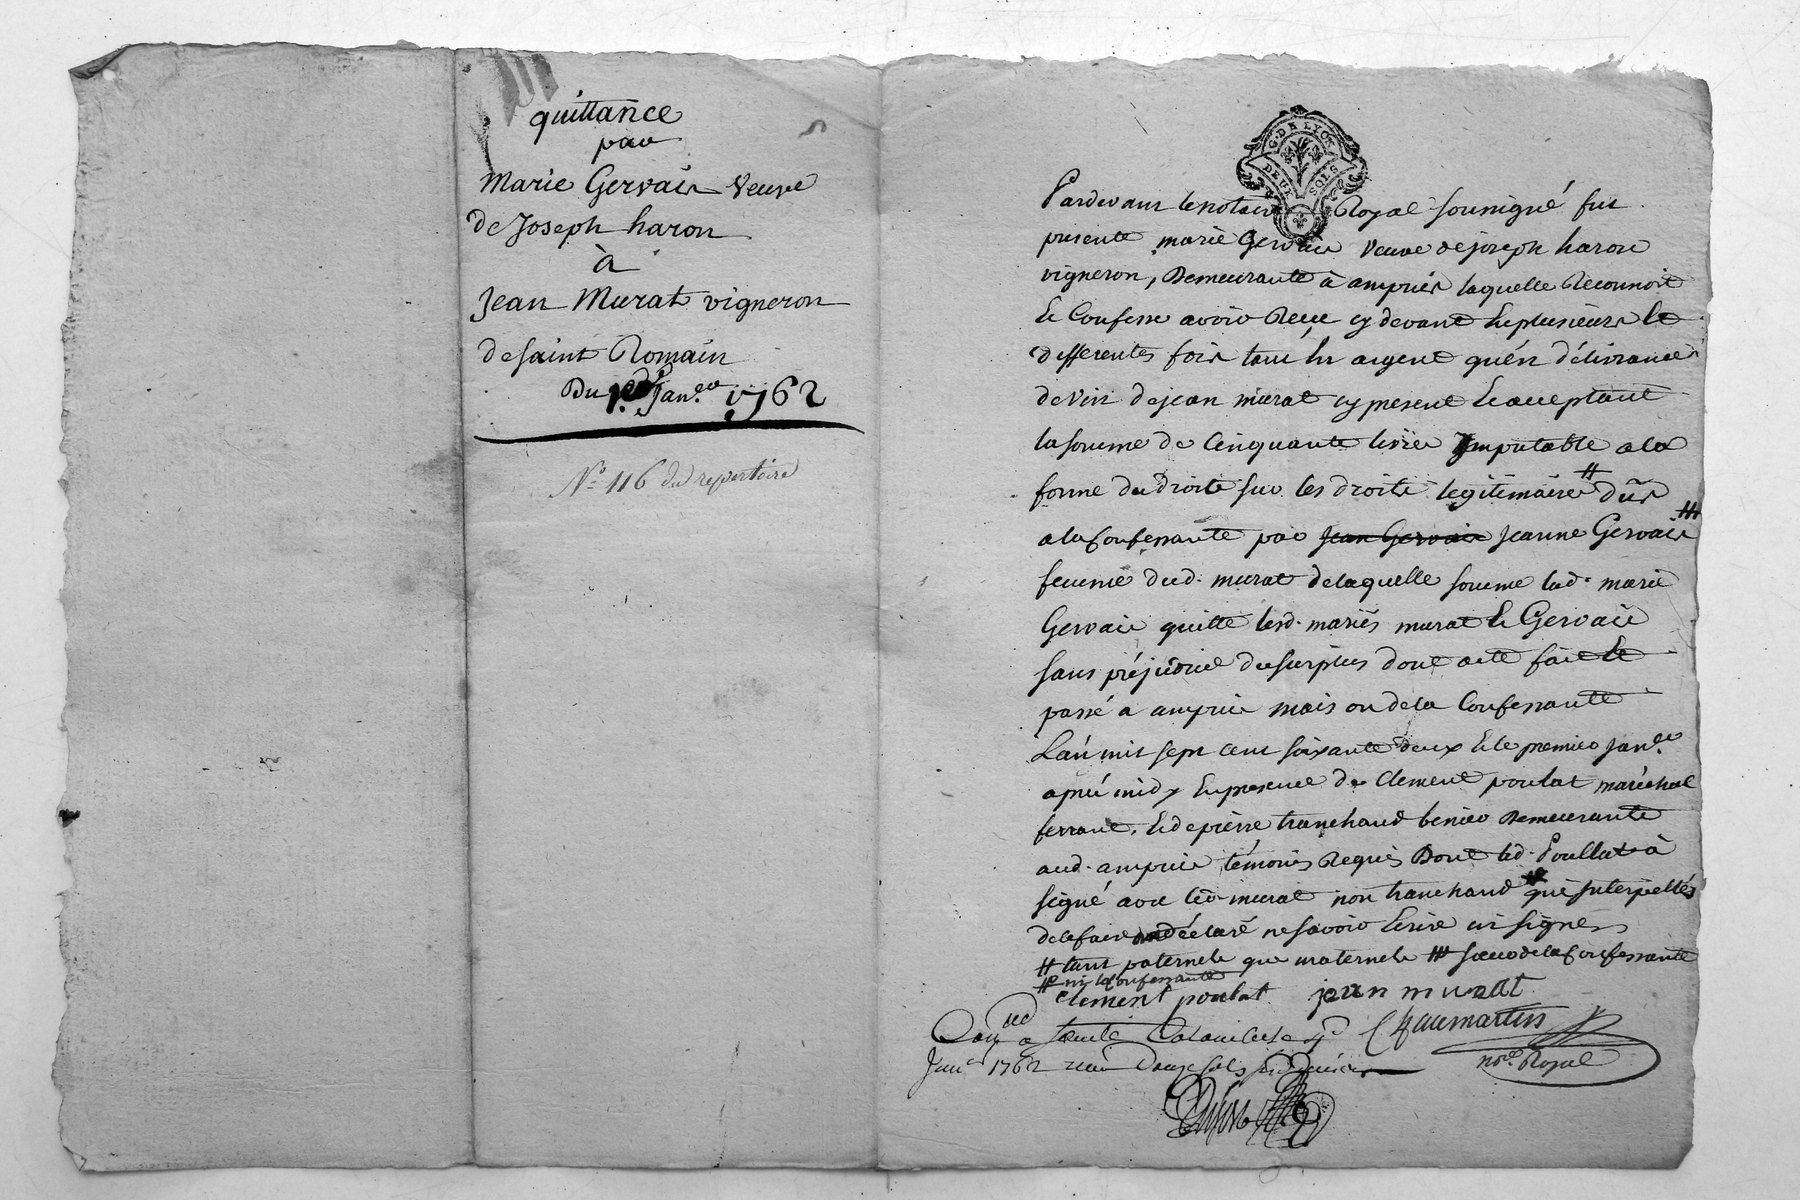 quittance
par
Marie Gervais veuve
de Joseph haron
à
Jean Murat vigneron
de saint Romain
Du 1er Janer 1762
No 116 du repertoire
G. DE LYON
DEUX SOLS
Pardevant le notaire Royal soussigné fut
presente marie Gervais veuve de joseph haron
vigneron, Demeurante à ampuis laquelle Reconnoit
et Confesse avoir Reçu cy devant en plusieurs et
differentes fois tant en argent qu'en délivrance
de vin de jean murat cy present et acceptant
la somme de Cinquante livres Imputable a la
forme du Droit sur les droits legitimaires # dûs
a la Confessante par Jean Gervais Jeanne Gervais ##
femme dud. murat de laquelle somme lad. marie
Gervais quitte lesd. mariés murat et Gervais
sans préjudice du surplus dont acte fait et
passé a ampuis maison de la Confessante
L'an mil sept cent soixante deux et le premier Janer
aprés midy En presence de Clement poulat maréchal
ferrant, et de pierre tranchand Demeurants
aud. ampuis témoins Requis Dont led. Poullat à
signé avec led. murat non tranchand qui Interpellés
de le faire ont déclaré ne savoir Ecrire ni signer
# tant paternels que maternels ## sœur de la Confessante
# ni la Confessante
Clement poulat jean murat
Chaumartin
nore. Royal
a sainte Colombe le
Janr 1762 reçu Douze sols six deniers